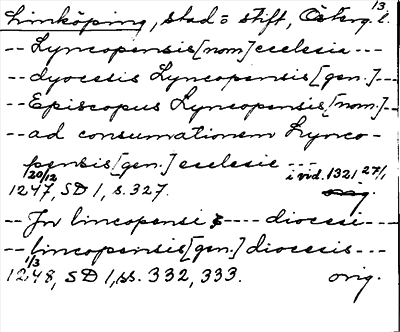 13
Linköping, stad o stift, Österg. l.
-- Lyncopensis [nom] ecclesia ---
-- dyocesis Lyncopensis [gen.] ---
-- Episcopus Lyncopensis, [nom.] --
-- ad consumationem Lynco-
pensis [gen.] ecclesie ---
20/12 i vid. 1321 27/1
1247, SD 1, s. 327. orig.
-- In lincopensi ---- diocesi ----
-- lincopensis [gen.] diocesis ---
1/3
1248, SD 1, ss. 332, 333. orig.